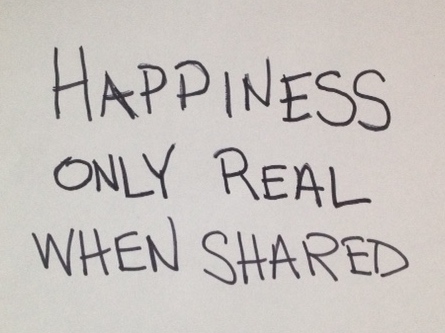 HAPPINESS
ONLY REAL
WHEN SHARED